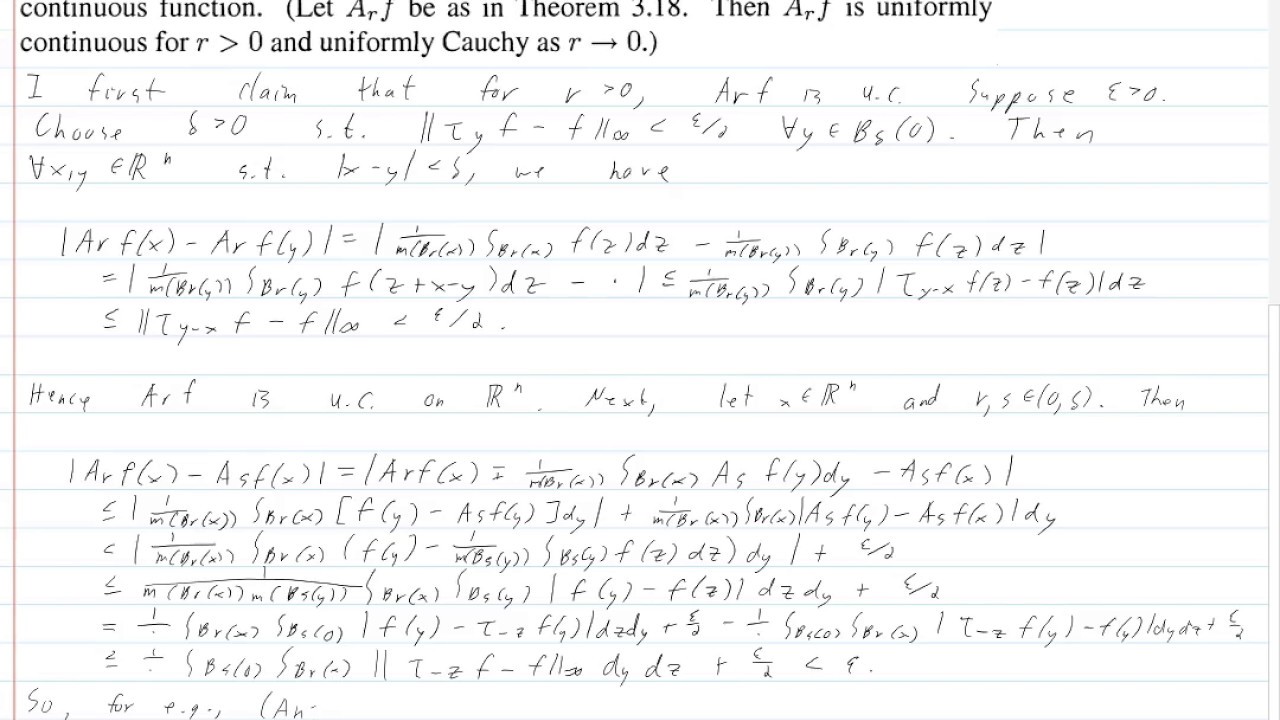 continuous function. (Let A_r f be as in Theorem 3.18. Then A_r f is uniformly
continuous for r > 0 and uniformly Cauchy as r → 0.)
I first claim that for r > 0, Arf is u.c. Suppose ε > 0.
Choose δ > 0 s.t. ||τ_y f - f||∞ < ε/2 ∀y ∈ B_δ(0). Then
∀x,y ∈ ℝ^n s.t. |x-y| < δ, we have
|Ar f(x) - Ar f(y)| = | 1/m(Br(x)) ∫Br(x) f(z)dz - 1/m(Br(y)) ∫Br(y) f(z)dz |
= | 1/m(Br(y)) ∫Br(y) f(z+x-y)dz - · | ≤ 1/m(Br(y)) ∫Br(y) | τ_y-x f(z) - f(z)|dz
≤ ||τ_y-x f - f||∞ < ε/2.
Hence Arf is u.c. on ℝ^n. Next, let x ∈ ℝ^n and r,s ∈ (0,δ). Then
|Arf(x) - Asf(x)| = |Arf(x) ∓ 1/m(Br(x)) ∫Br(x) As f(y)dy - Asf(x)|
≤ | 1/m(Br(x)) ∫Br(x) [f(y) - Asf(y)]dy| + 1/m(Br(x)) ∫Br(x)|Asf(y) - Asf(x)|dy
< | 1/m(Br(x)) ∫Br(x) (f(y) - 1/m(Bs(y)) ∫Bs(y) f(z)dz) dy | + ε/2
≤ 1/m(Br(x))m(Bs(y)) ∫Br(x) ∫Bs(y) |f(y) - f(z)| dzdy + ε/2
= 1/· ∫Br(x) ∫Bs(0) |f(y) - τ_-z f(y)|dzdy + ε/2 = 1/· ∫Bs(0) ∫Br(x) |τ_-z f(y) - f(y)|dydz + ε/2
≤ 1/· ∫Bs(0) ∫Br(x) ||τ_-z f - f||∞ dy dz + ε/2 < ε.
So, for e.g., (A